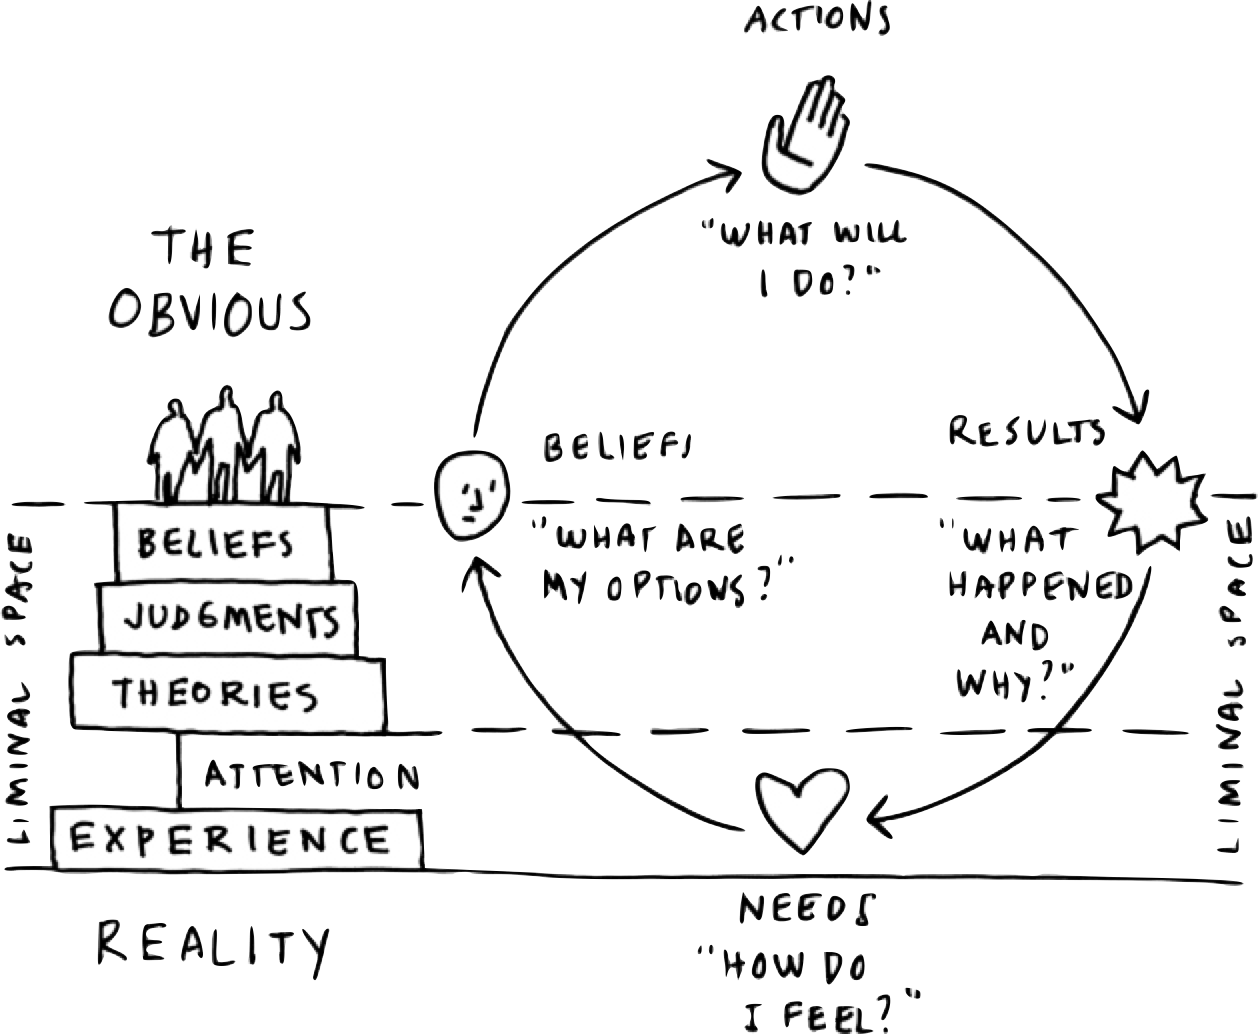 ACTIONS
"WHAT WILL
I DO?"
THE
OBVIOUS
BELIEFS
"WHAT ARE
MY OPTIONS?"
RESULTS
"WHAT
HAPPENED
AND
WHY?"
LIMINAL SPACE
BELIEFS
JUDGMENTS
THEORIES
ATTENTION
EXPERIENCE
LIMINAL SPACE
REALITY
NEEDS
"HOW DO
I FEEL?"